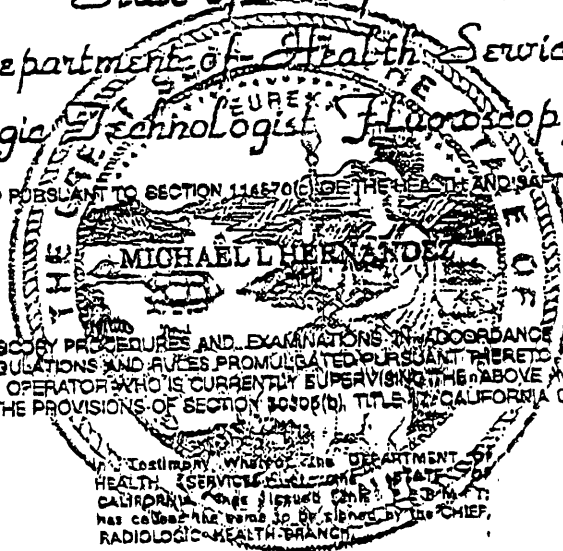 State of
epartment of Health Servic
EUREK
gic Technologist Fluoroscop
PURSUANT TO SECTION OF THE HEALTH AND SAFT
MICHAEL L HERNANDEZ
THE
OF
SCOPY PROCEDURES AND EXAMINATIONS IN ACCORDANCE
GULATIONS AND RULES PROMULGATED PURSUANT THERETO
OPERATOR WHO IS CURRENTLY SUPERVISING THE ABOVE
THE PROVISIONS OF SECTION 30305(b), TITLE 17, CALIFORNIA
In Testimony Whereof the DEPARTMENT OF
HEALTH SERVICES STATE OF
CALIFORNIA has issued
has caused the same to be signed by the CHIEF,
RADIOLOGIC HEALTH BRANCH